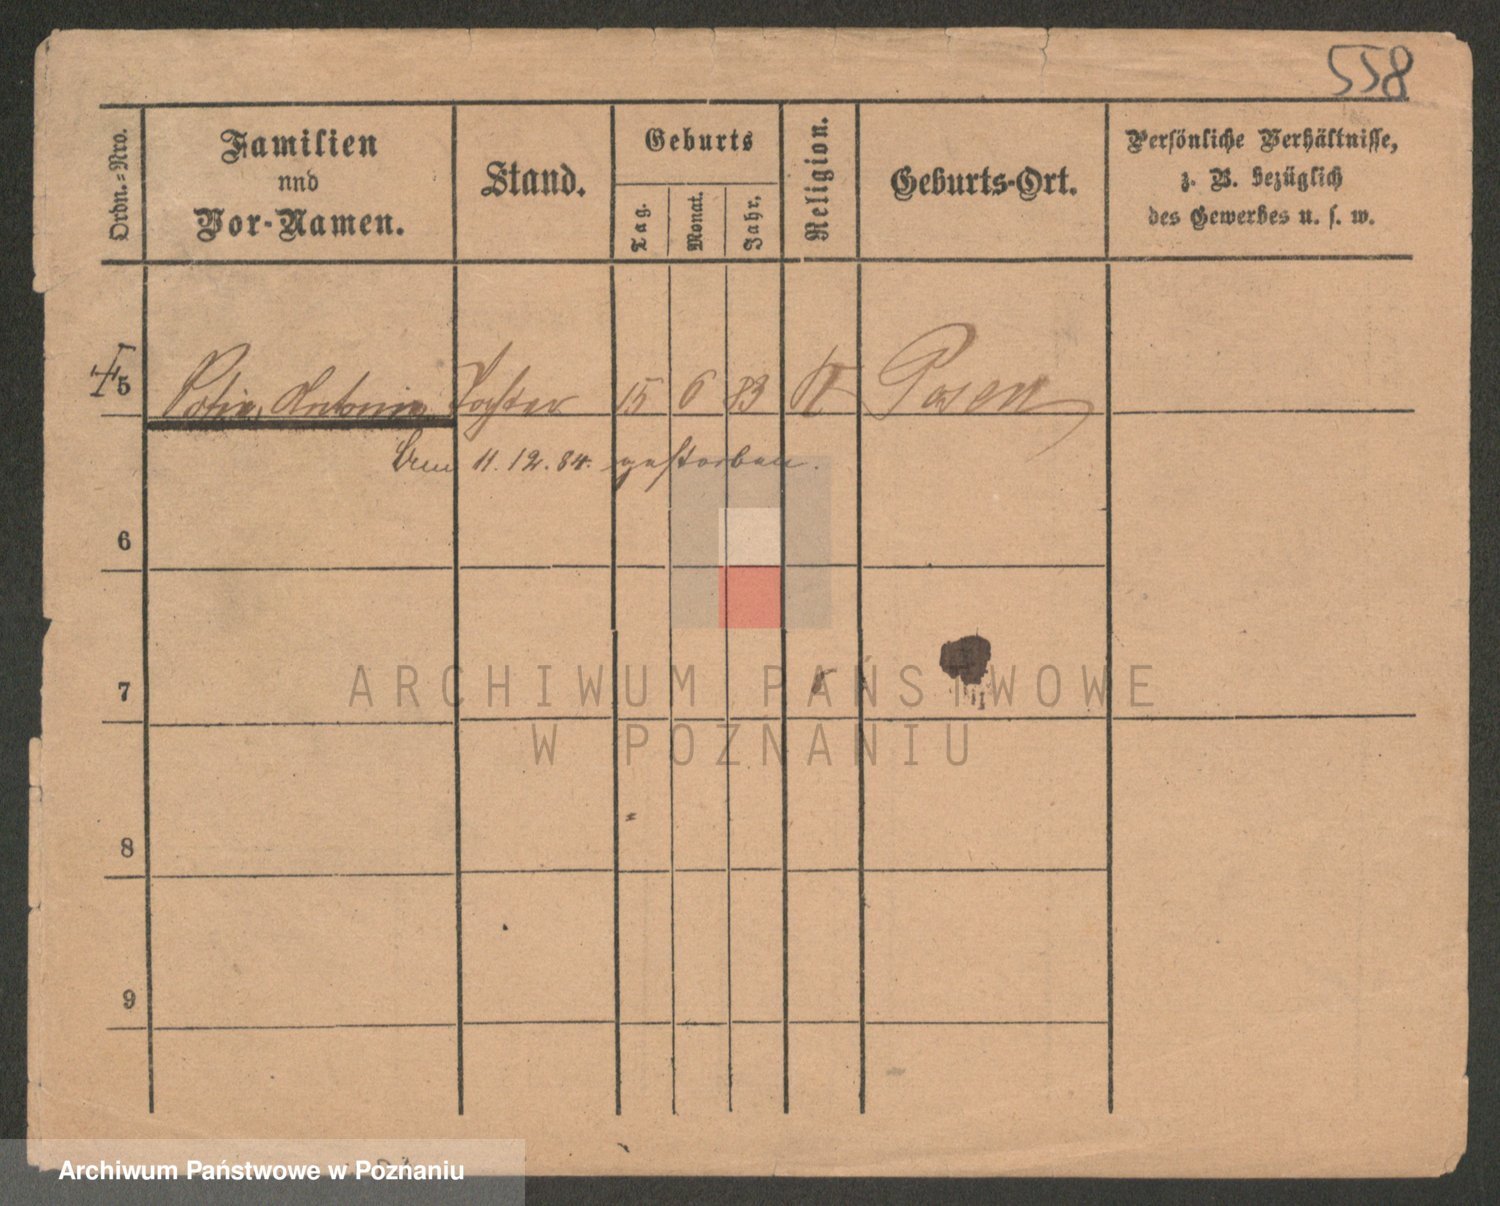 558
Ordn.=Nro.
Familien
nnd
Vor-Namen.
Stand.
Geburts
Tag.
Monat.
Jahr.
Religion.
Geburts-Ort.
Persönliche Verhältnisse,
z. B. bezüglich
des Gewerbes u. s. w.
5 Antonie Tochter 15 6 83 K Posen
11. 12. 84. gestorben.
6
7
ARCHIWUM PAŃSTWOWE
W POZNANIU
8
9
Archiwum Państwowe w Poznaniu